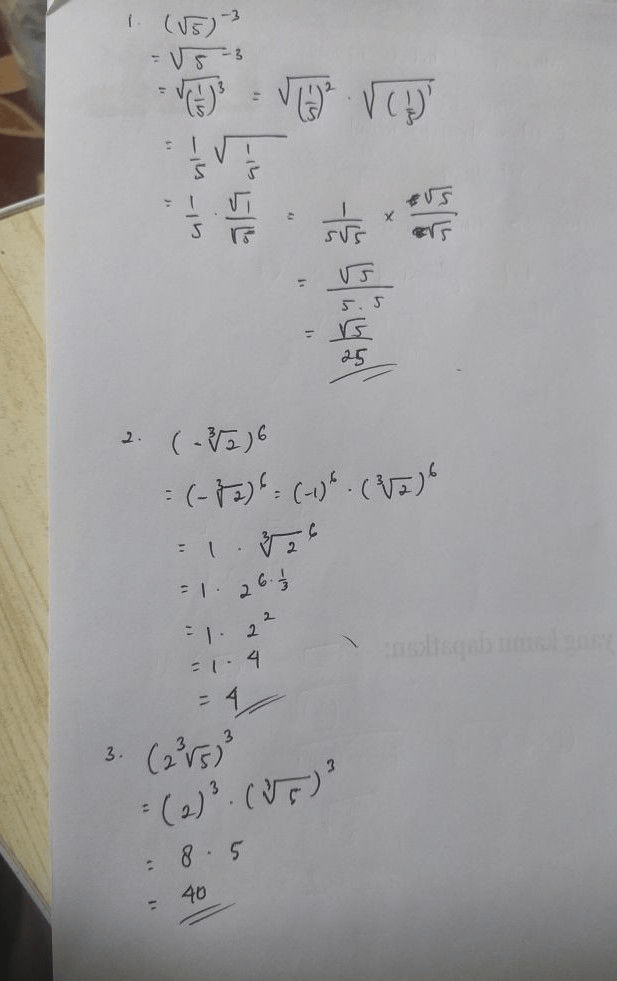 1. (√5)⁻³
= √5⁻³
= √(1/5)³ = √(1/5)² · √(1/5)¹
= 1/5 √1/5
= 1/5 · √1/√5 = 1/5√5 × √5/√5
= √5/5.5
= √5/25
2. (-∛2)⁶
= (-∛2)⁶ = (-1)⁶ · (∛2)⁶
= 1 · ∛2⁶
= 1 · 2^(6·1/3)
= 1 · 2²
= 1 · 4
= 4
yang kamu dapatkan:
3. (2∛5)³
= (2)³ · (∛5)³
= 8 · 5
= 40